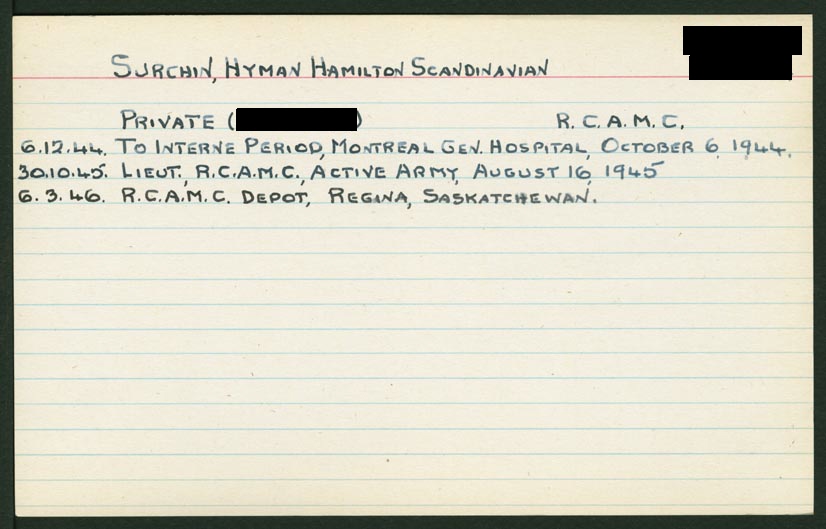 SURCHIN, HYMAN HAMILTON SCANDINAVIAN
PRIVATE ( ) R.C.A.M.C.
6.12.44. TO INTERNE PERIOD, MONTREAL GEN. HOSPITAL, OCTOBER 6, 1944.
30.10.45. LIEUT., R.C.A.M.C., ACTIVE ARMY, AUGUST 16, 1945
6.3.46. R.C.A.M.C. DEPOT, REGINA, SASKATCHEWAN.